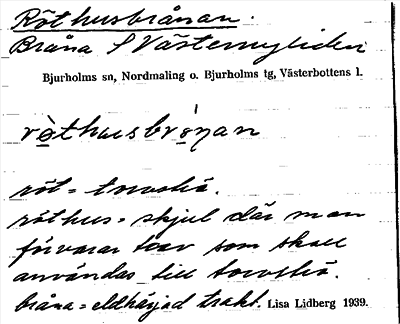 Röthusbrånan.
Bråna S Västernyliden
Bjurholms sn, Nordmaling o. Bjurholms tg, Västerbottens l.
ròthusbrónan
röt = torvströ.
röthus = skjul där man
förvarar torv som skall
användas till torvströ.
bråna = eldhärjad trakt. Lisa Lidberg 1939.